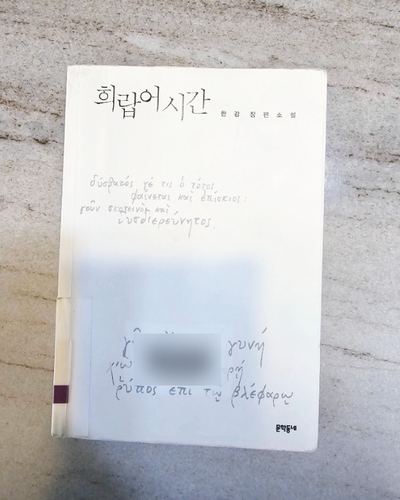 희랍어 시간
한 강 장 편 소 설
δύσβατός γέ τις ὁ τόπος
φαίνεται καὶ ἐπίσκιος·
γοῦν σκοτεινὸς καὶ
δυσδιερεύνητος.
γυνή
ῥύπος ἐπι τῳ βλέφαρῳ
문학동네